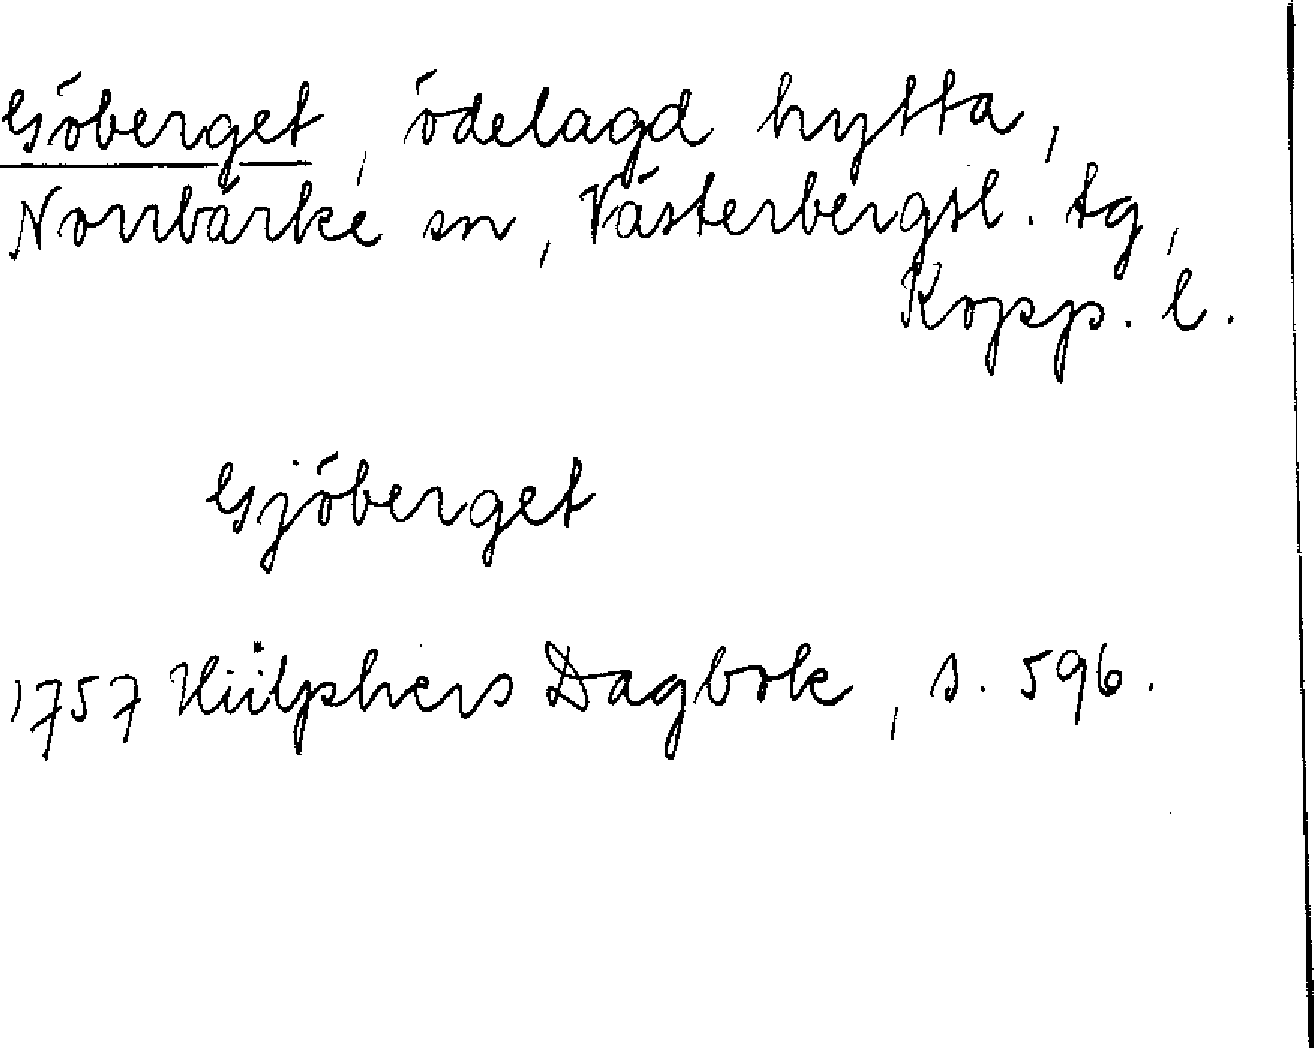 Göberget, ödelagd hytta,
Norrbärke sn, Västerbergsl. tg,
Kopp. l.
Gjöberget
1757 Hülphers Dagbok, s. 596.